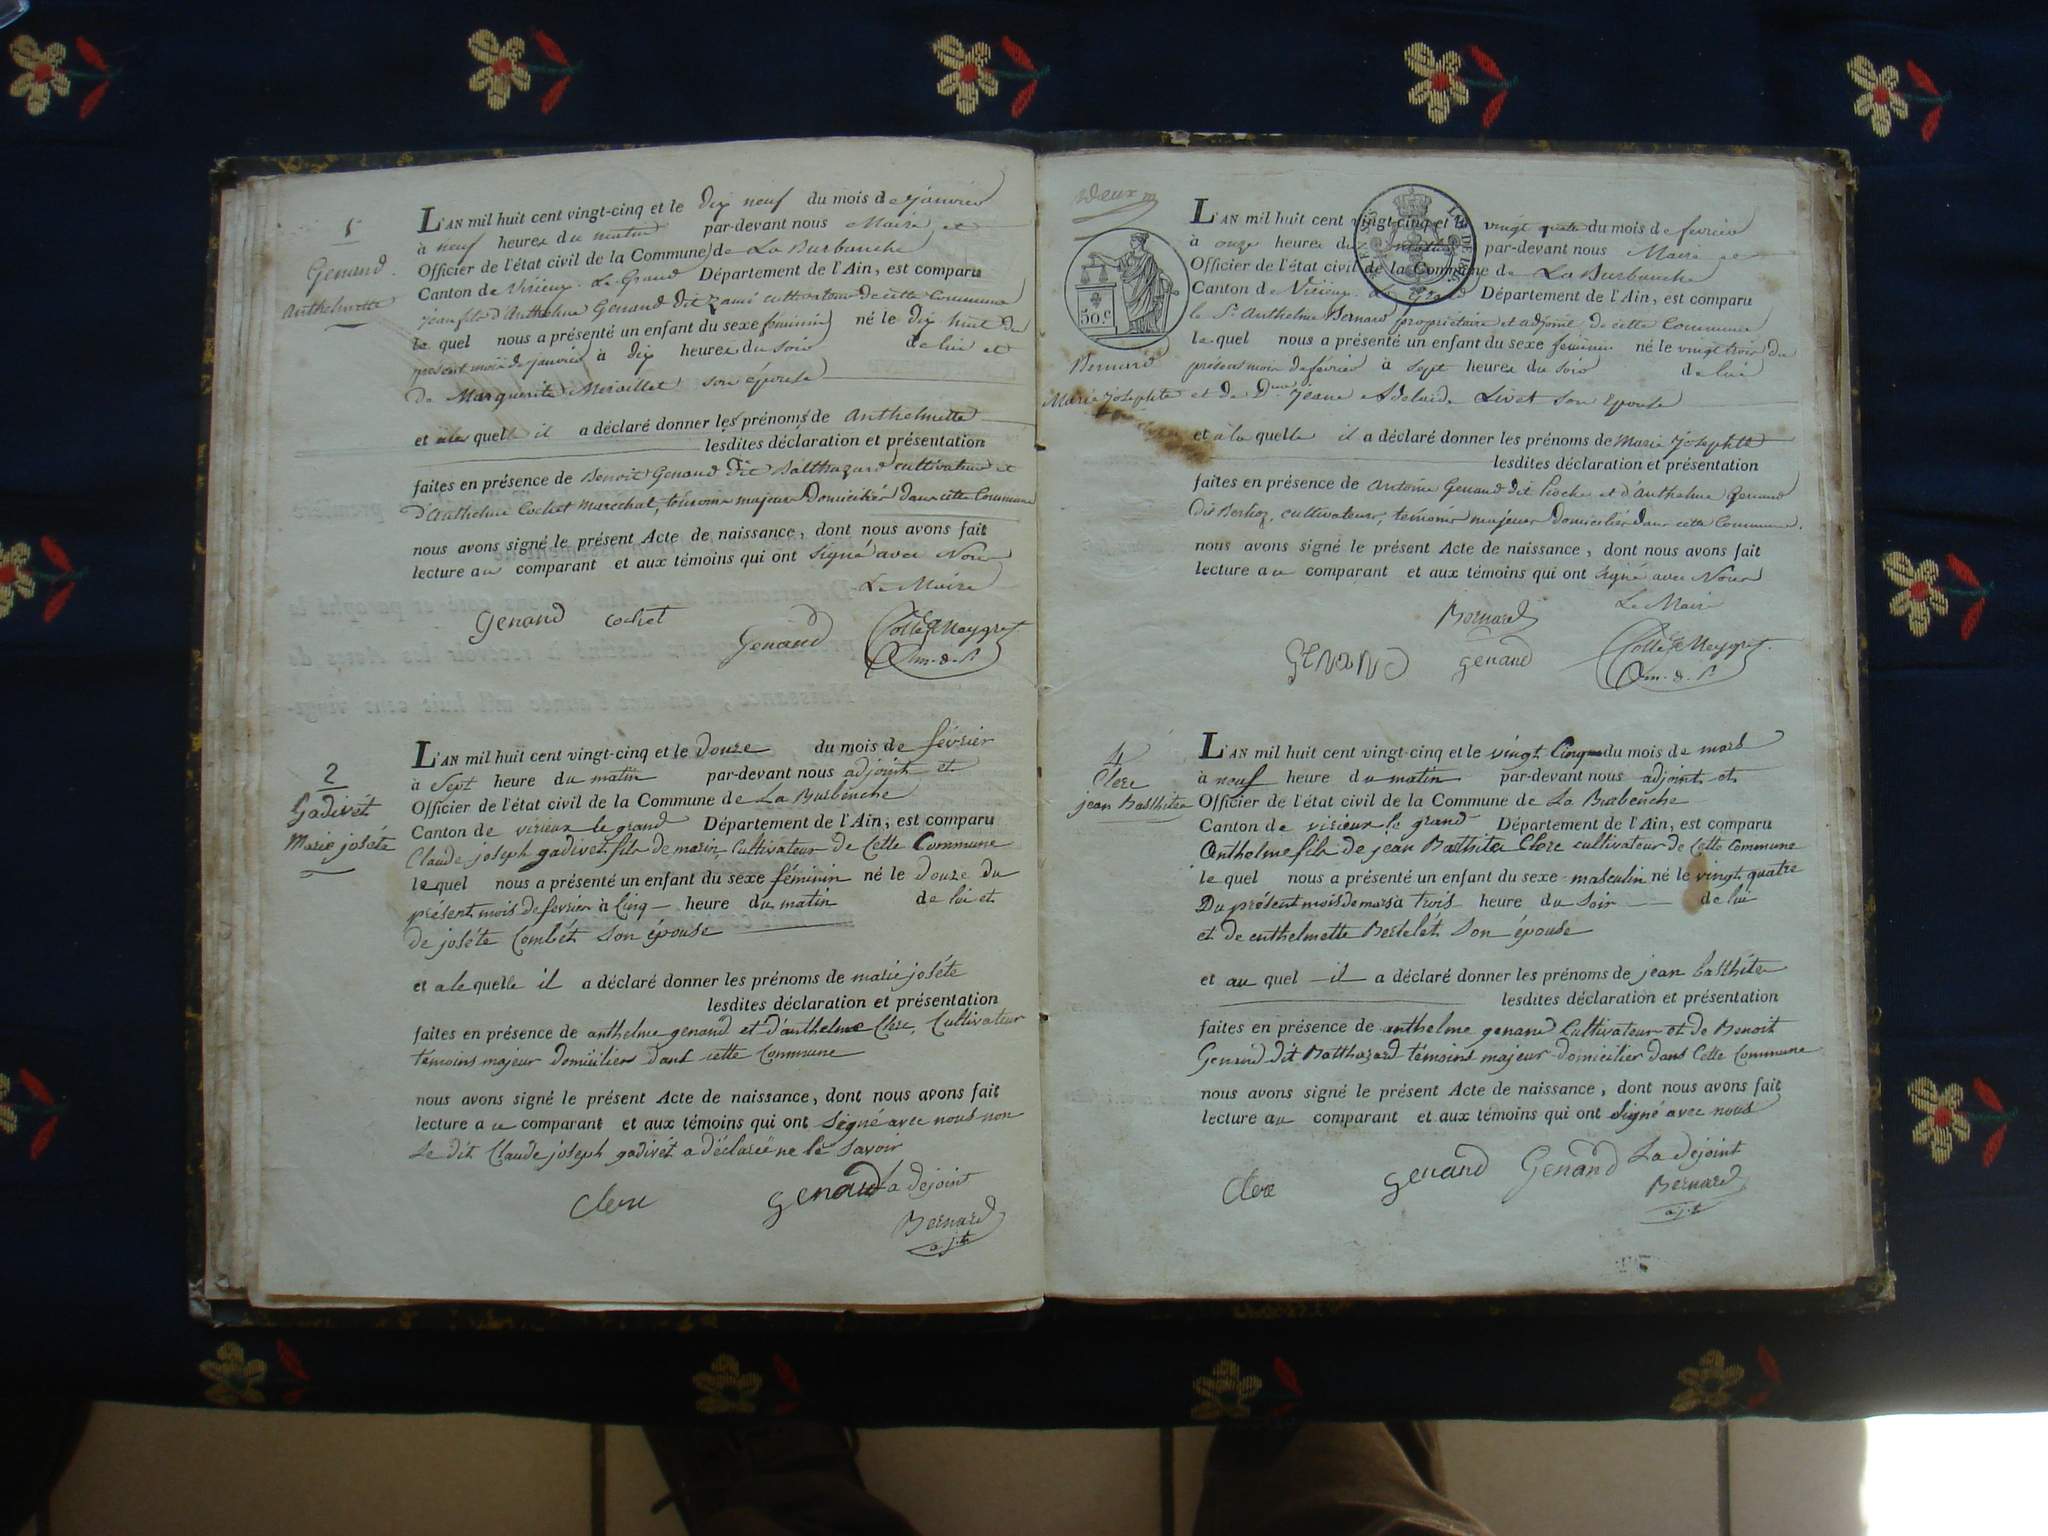 1
Genand
Anthelmette
L'AN mil huit cent vingt-cinq et le Dix neuf du mois de janvier
à neuf heures du matin par-devant nous Maire et
Officier de l'état civil de la Commune de La Burbanche
Canton de Virieux-Le-Grand Département de l'Ain, est comparu
jean fils d'Anthelme Genand dit cultivateur de cette Commune
le quel nous a présenté un enfant du sexe féminin né le dix huit du
présent mois de janvier à dix heures du soir de lui et
de Marguerite Miraillet son épouse
et à la quelle il a déclaré donner les prénoms de Anthelmette
lesdites déclaration et présentation
faites en présence de Benoit Genand dit Balthazard cultivateur et
d'Anthelme Cochet Maréchal, témoins majeurs domiciliés dans cette Commune
nous avons signé le présent Acte de naissance, dont nous avons fait
lecture au comparant et aux témoins qui ont signé avec Nous
Le Maire
Genand cochet
Genand
2
Gadivét
Marie joséte
L'AN mil huit cent vingt-cinq et le douze du mois de février
à Sept heure du matin par-devant nous adjoint et
Officier de l'état civil de la Commune de La Burbenche
Canton de virieux le grand Département de l'Ain, est comparu
Claude joseph gadivet fils de marin, Cultivateur de Cette Commune
le quel nous a présenté un enfant du sexe féminin né le douze du
présent mois de fevrier à Cinq heure du matin de lui et
de joséte Combét Son épouse
et a le quelle il a déclaré donner les prénoms de marie joséte
lesdites déclaration et présentation
faites en présence de anthelme genand et d'anthelme Clerc, Cultivateur
témoins majeur domicilier dans cette Commune
nous avons signé le présent Acte de naissance, dont nous avons fait
lecture au comparant et aux témoins qui ont signé avec nous non
Le dit Claude joseph gadivét a déclareé ne le savoir
Clerc genand La dejoint
Bernard
a.j.t
deux
50.c
Bernard
Marie Josephte
L'AN mil huit cent vingt-cinq et le vingt quatre du mois de février
à onze heures du matin par-devant nous Maire et
Officier de l'état civil de la Commune de La Burbanche
Canton de Virieux-le grand Département de l'Ain, est comparu
le Sr Anthelme Bernard propriétaire et adjoint de cette Commune
le quel nous a présenté un enfant du sexe féminin né le vingt trois du
présent mois de février à sept heures du soir de lui
et de Jeane Adelaide Livet son Epouse
et à la quelle il a déclaré donner les prénoms de Marie Josephte
lesdites déclaration et présentation
faites en présence de Antoine Genand dit et d'Anthelme Genand
dit Berlioz, cultivateurs, témoins majeurs domiciliés dans cette Commune.
nous avons signé le présent Acte de naissance, dont nous avons fait
lecture au comparant et aux témoins qui ont signé avec Nous
Le Maire
Bernard
GENAND genand
4
Clerc
jean Basthite
L'AN mil huit cent vingt-cinq et le vingt Cinq du mois de mars
à neuf heure du matin par-devant nous adjoint et
Officier de l'état civil de la Commune de La Burbenche
Canton de virieux le grand Département de l'Ain, est comparu
Anthelme fils de jean Basthite Clerc cultivateur de Cette Commune
le quel nous a présenté un enfant du sexe masculin né le vingt quatre
Du présent mois de mars à trois heure du Soir de lui
et de enthelmette Bertelét Son épouse
et au quel il a déclaré donner les prénoms de jean basthite
lesdites déclaration et présentation
faites en présence de anthelme genand Cultivateur et de Benoit
Genand dit Batthazard témoins majeur domicilier dans Cette Commune
nous avons signé le présent Acte de naissance, dont nous avons fait
lecture au comparant et aux témoins qui ont signé avec nous
La dejoint
Clerc genand Genand Bernard
a.j.t